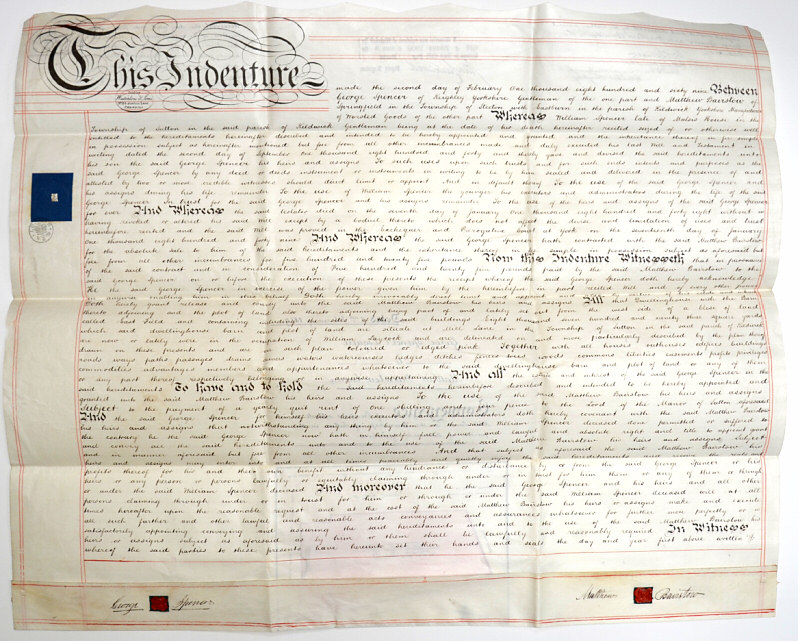 This Indenture
made the second day of February One thousand eight hundred and sixty nine Between
George Spencer of Keighley Yorkshire Gentleman of the one part and Matthew Bairstow of
Springfield in the Township of Steeton with Eastburn in the parish of Kildwick Yorkshire Manufacturer
of Worsted Goods of the other part Whereas William Spencer late of Malsis House in the
Township of Sutton in the said parish of Kildwick Gentleman being at the date of his death hereinafter recited seized of or otherwise well
entitled to the hereditaments hereinafter described and intended to be hereby appointed and granted and the inheritance thereof in fee simple
in possession subject as hereinafter mentioned but free from all other incumbrances made and duly executed his last Will and Testament in
writing dated the second day of September One thousand eight hundred and forty and thereby gave and devised the said hereditaments unto
his son the said George Spencer his heirs and assigns To such uses upon such trusts and for such ends intents and purposes as the
said George Spencer by any deed or deeds instrument or instruments in writing to be by him sealed and delivered in the presence of and
attested by two or more credible witnesses should direct limit or appoint And in default thereof To the use of the said George Spencer and
his assigns during his life remainder To the use of William Spencer the younger his executors and administrators during the life of the said
George Spencer In trust for the said George Spencer and his assigns remainder To the use of the heirs and assigns of the said George Spencer
for ever And Whereas the said testator died on the seventh day of January One thousand eight hundred and forty eight without
having revoked or altered his said Will except by a Codicil thereto which does not affect the devise and limitation of uses and trust
hereinbefore recited and the said Will was proved in the Exchequer and Prerogative Court at York on the seventeenth day of January
One thousand eight hundred and forty And Whereas the said George Spencer hath contracted with the said Matthew Bairstow
for the absolute sale to him of the said hereditaments and the inheritance thereof in fee simple in possession subject as aforesaid but
free from all other incumbrances for five hundred and twenty five pounds Now this Indenture Witnesseth that in pursuance
of the said contract and in consideration of Five hundred and twenty five pounds paid by the said Matthew Bairstow to the
said George Spencer on or before the execution of these presents the receipt whereof the said George Spencer doth hereby acknowledge
He the said George Spencer in exercise of the power given him by the hereinbefore in part recited Will and of every other power
in anywise enabling him in this behalf Doth hereby irrevocably direct limit and appoint and
Doth hereby grant release and convey unto the said Matthew Bairstow his heirs and assigns All that Dwellinghouse with the Barn
thereto adjoining and the plot of land also thereto adjoining being part of and lately set out from the west side of a close of land
called East Field and containing including the sites of the said buildings Eight thousand seven hundred and twenty three square yards
which said Dwellinghouse barn and plot of land are situate at West Lane in the Township of Sutton in the said parish of Kildwick
are now or lately were in the occupation of William Laycock and are delineated and more particularly described by the plan thereof
drawn on these presents and are in such plan coloured or edged pink Together with all houses outhouses edifices building
roads ways paths passages drains sewers waters watercourses hedges ditches fences trees woods commons liberties easements profits privileges
commodities advantages members and appurtenances whatsoever to the said dwellinghouse barn and plot of land or any of them
or any part thereof respectively belonging or in anywise appertaining And all the estate and interest of the said George Spencer in the
said hereditaments To have and to hold the said hereditaments hereinbefore described and intended to be hereby appointed and
granted unto the said Matthew Bairstow his heirs and assigns To the use of the said Matthew Bairstow his heirs and assigns
Subject to the payment of a yearly quit rent of One shilling and four pence to the Lord of the Manor of Sutton aforesaid
And the said George Spencer for himself his heirs executors and administrators doth hereby covenant with the said Matthew Bairstow
his heirs and assigns that notwithstanding any thing by him or the said William Spencer deceased done permitted or suffered to
the contrary he the said George Spencer now hath in himself full power and absolute right and title to appoint grant
and convey the said hereditaments unto and to the use of the said Matthew Bairstow his heirs and assigns Subject
and in manner aforesaid but free from all other incumbrances And that subject as aforesaid the said Matthew Bairstow his
heirs and assigns may enter into and at all times hold and quietly enjoy the said hereditaments and receive the rents and
profits thereof for his and their own benefit without any hindrance or disturbance by or from the said George Spencer or his
heirs or any person or persons lawfully or equitably claiming through under or in trust for him them or any of them or through
or under the said William Spencer deceased And moreover that he the said George Spencer and his heirs and all other
persons claiming through him or them or in trust for him or through or under the said William Spencer deceased will at all
times hereafter upon the reasonable request and at the cost of the said Matthew Bairstow his heirs or assigns make and execute
all such further and other lawful and reasonable acts conveyances and assurances whatsoever for further more perfectly or
satisfactorily appointing conveying or assuring the said hereditaments unto and to the use of the said Matthew Bairstow his
heirs or assigns subject as aforesaid as by him or them shall be lawfully and reasonably required In Witness
whereof the said parties to these presents have hereunto set their hands and seals the day and year first above written
George Spencer
Matthew Bairstow